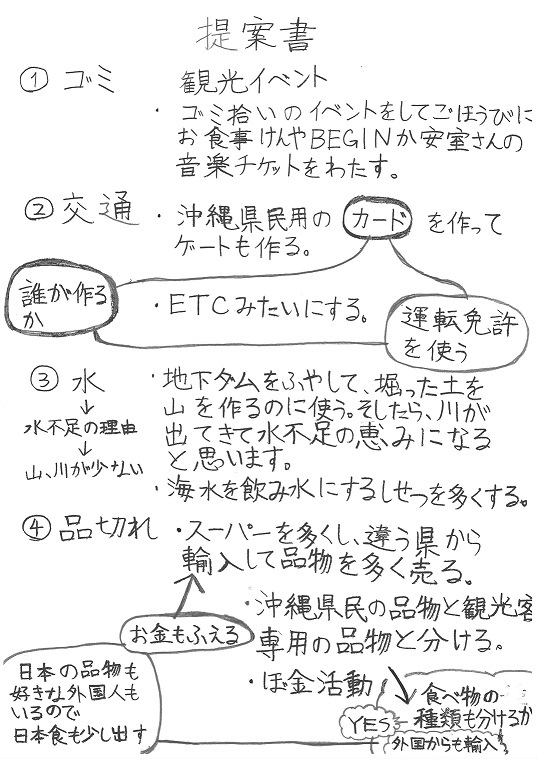 提案書
① ゴミ 観光イベント
・ゴミ拾いのイベントをしてごほうびに
お食事けんやBEGINか安室さんの
音楽チケットをわたす。
② 交通 ・沖縄県民用の カード を作って
ゲートも作る。
誰が作る
か
・ETCみたいにする。
運転免許
を使う
③ 水
↓
水不足の理由
↓
山、川が少ない
・地下ダムをふやして、堀った土を
山を作るのに使う。そしたら、川が
出てきて水不足の恵みになる
と思います。
・海水を飲み水にするしせつを多くする。
④ 品切れ ・スーパーを多くし、違う県から
輸入して品物を多く売る。
お金もふえる
・沖縄県民の品物と観光客
専用の品物と分ける。
・ぼ金活動
日本の品物も
好きな外国人も
いるので
日本食も少し出す
食べ物の
種類も分けるか
YES
外国からも輸入